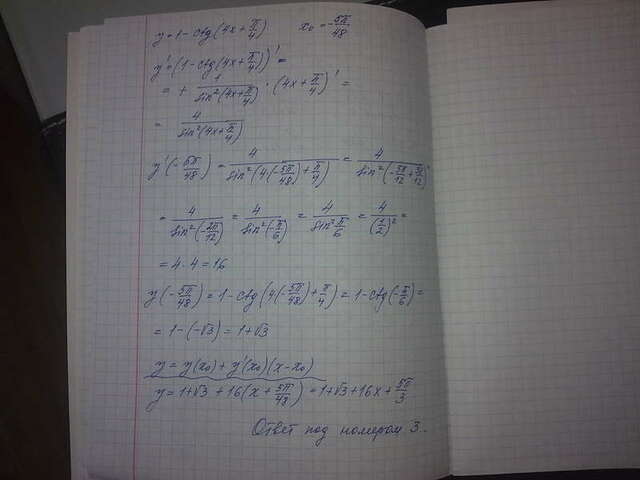 y = 1 - ctg(4x + π/4) x₀ = -5π/48
y' = (1 - ctg(4x + π/4))' =
= + 1/sin²(4x + π/4) · (4x + π/4)' =
= 4/sin²(4x + π/4)
y'(-5π/48) = 4/sin²(4(-5π/48) + π/4) = 4/sin²(-5π/12 + 3π/12)
= 4/sin²(-2π/12) = 4/sin²(-π/6) = 4/sin² π/6 = 4/(1/2)² =
= 4 · 4 = 16
y(-5π/48) = 1 - ctg(4(-5π/48) + π/4) = 1 - ctg(-π/6) =
= 1 - (-√3) = 1 + √3
y = y(x₀) + y'(x₀)(x - x₀)
y = 1 + √3 + 16(x + 5π/48) = 1 + √3 + 16x + 5π/3
Ответ под номером 3.